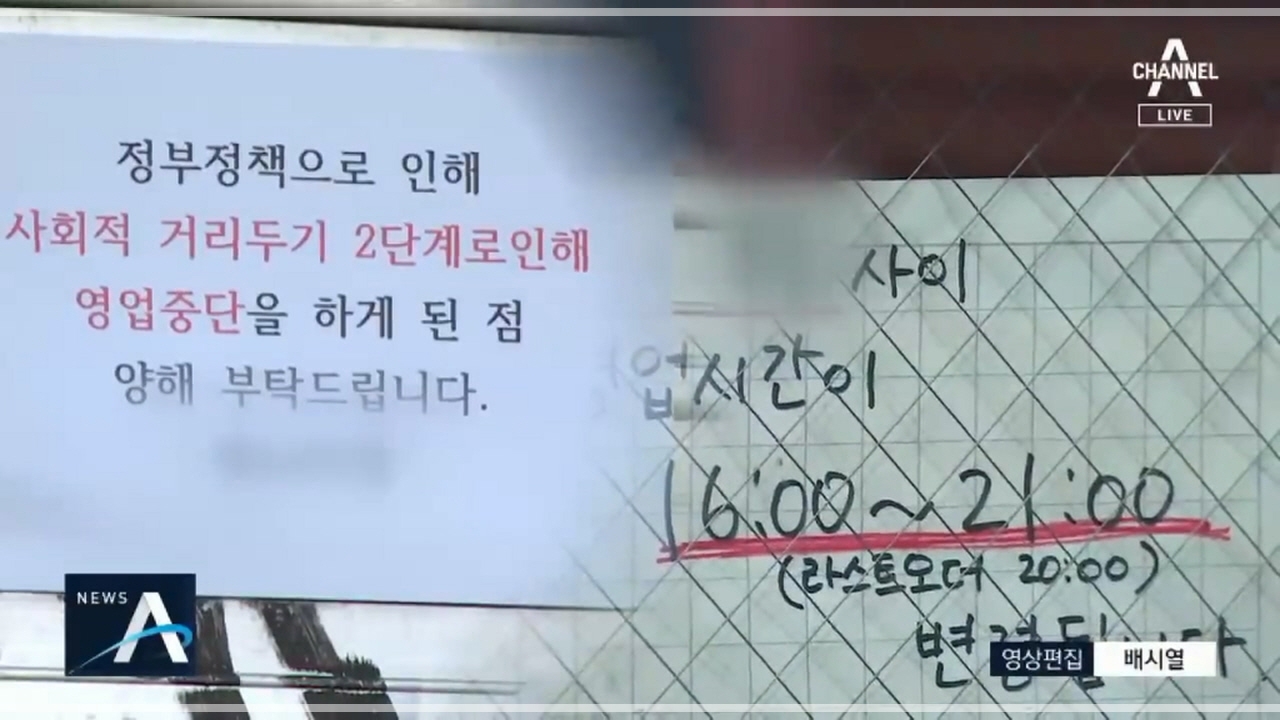 정부정책으로 인해
사회적 거리두기 2단계로인해
영업중단을 하게 된 점
양해 부탁드립니다.
사이
업시간이
16:00~21:00
(라스트오더 20:00)
변경됩니다
CHANNEL A
LIVE
NEWS A
영상편집 배시열